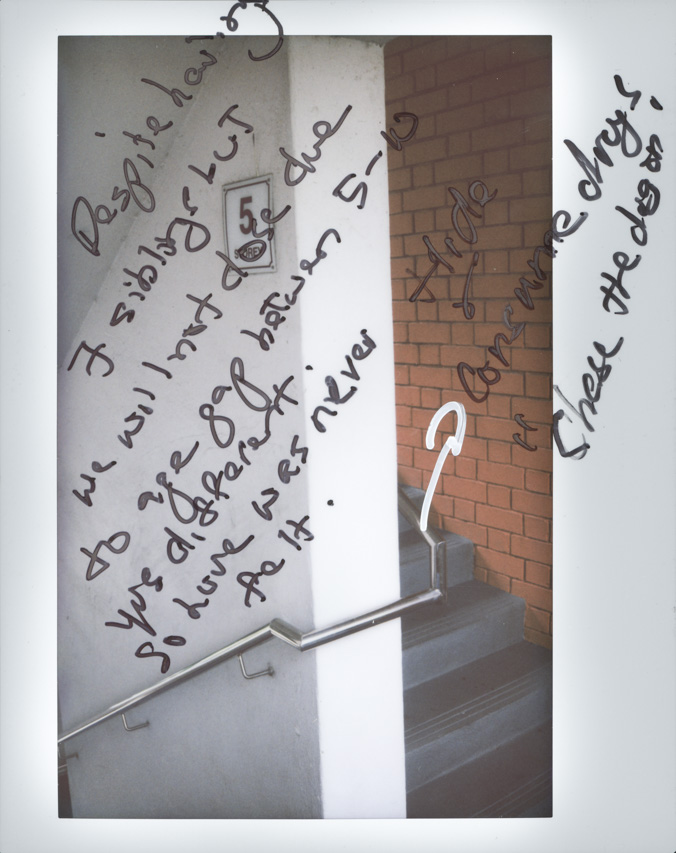 Despite having
7 siblings but
we will not close due
to age gap between 5-10
yrs different.
so love was never
felt.
5
Hide
to
Consume drugs,
"Chase the dragon.